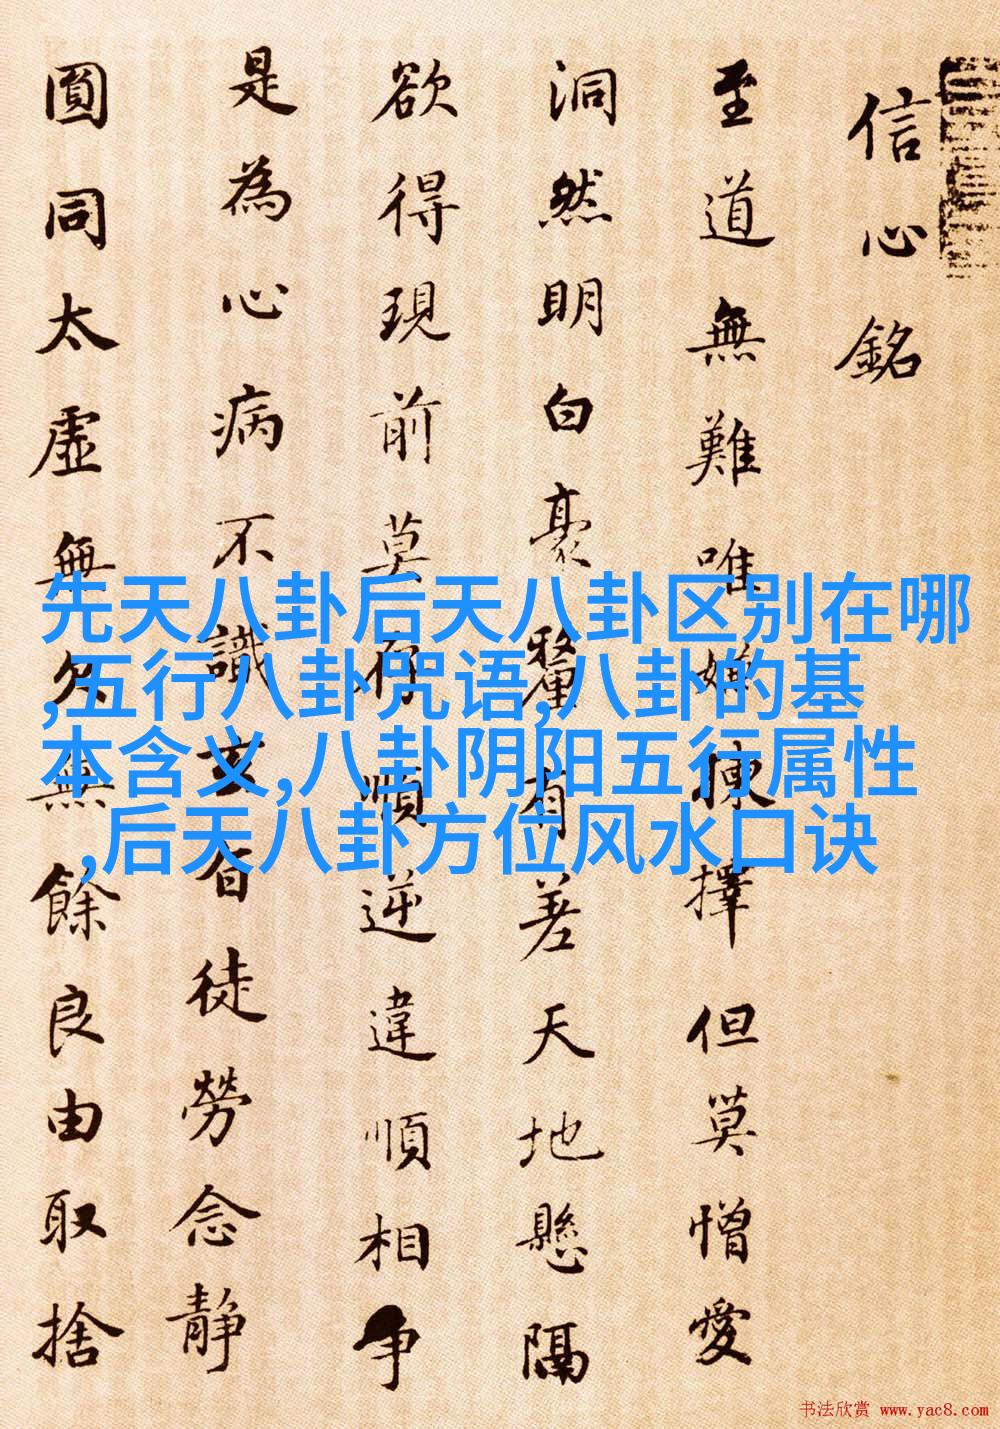 信心銘
至道無難唯嫌揀擇但莫憎愛
洞然明白豪釐有差天地懸隔
欲得現前莫存順逆違順相争
是為心病不識玄旨徒勞念静
圓同太虛無欠無餘良由取捨
先天八卦后天八卦区别在哪
,五行八卦咒语,八卦的基
本含义,八卦阴阳五行属性
,后天八卦方位风水口诀
书法欣赏 www.yac8.com